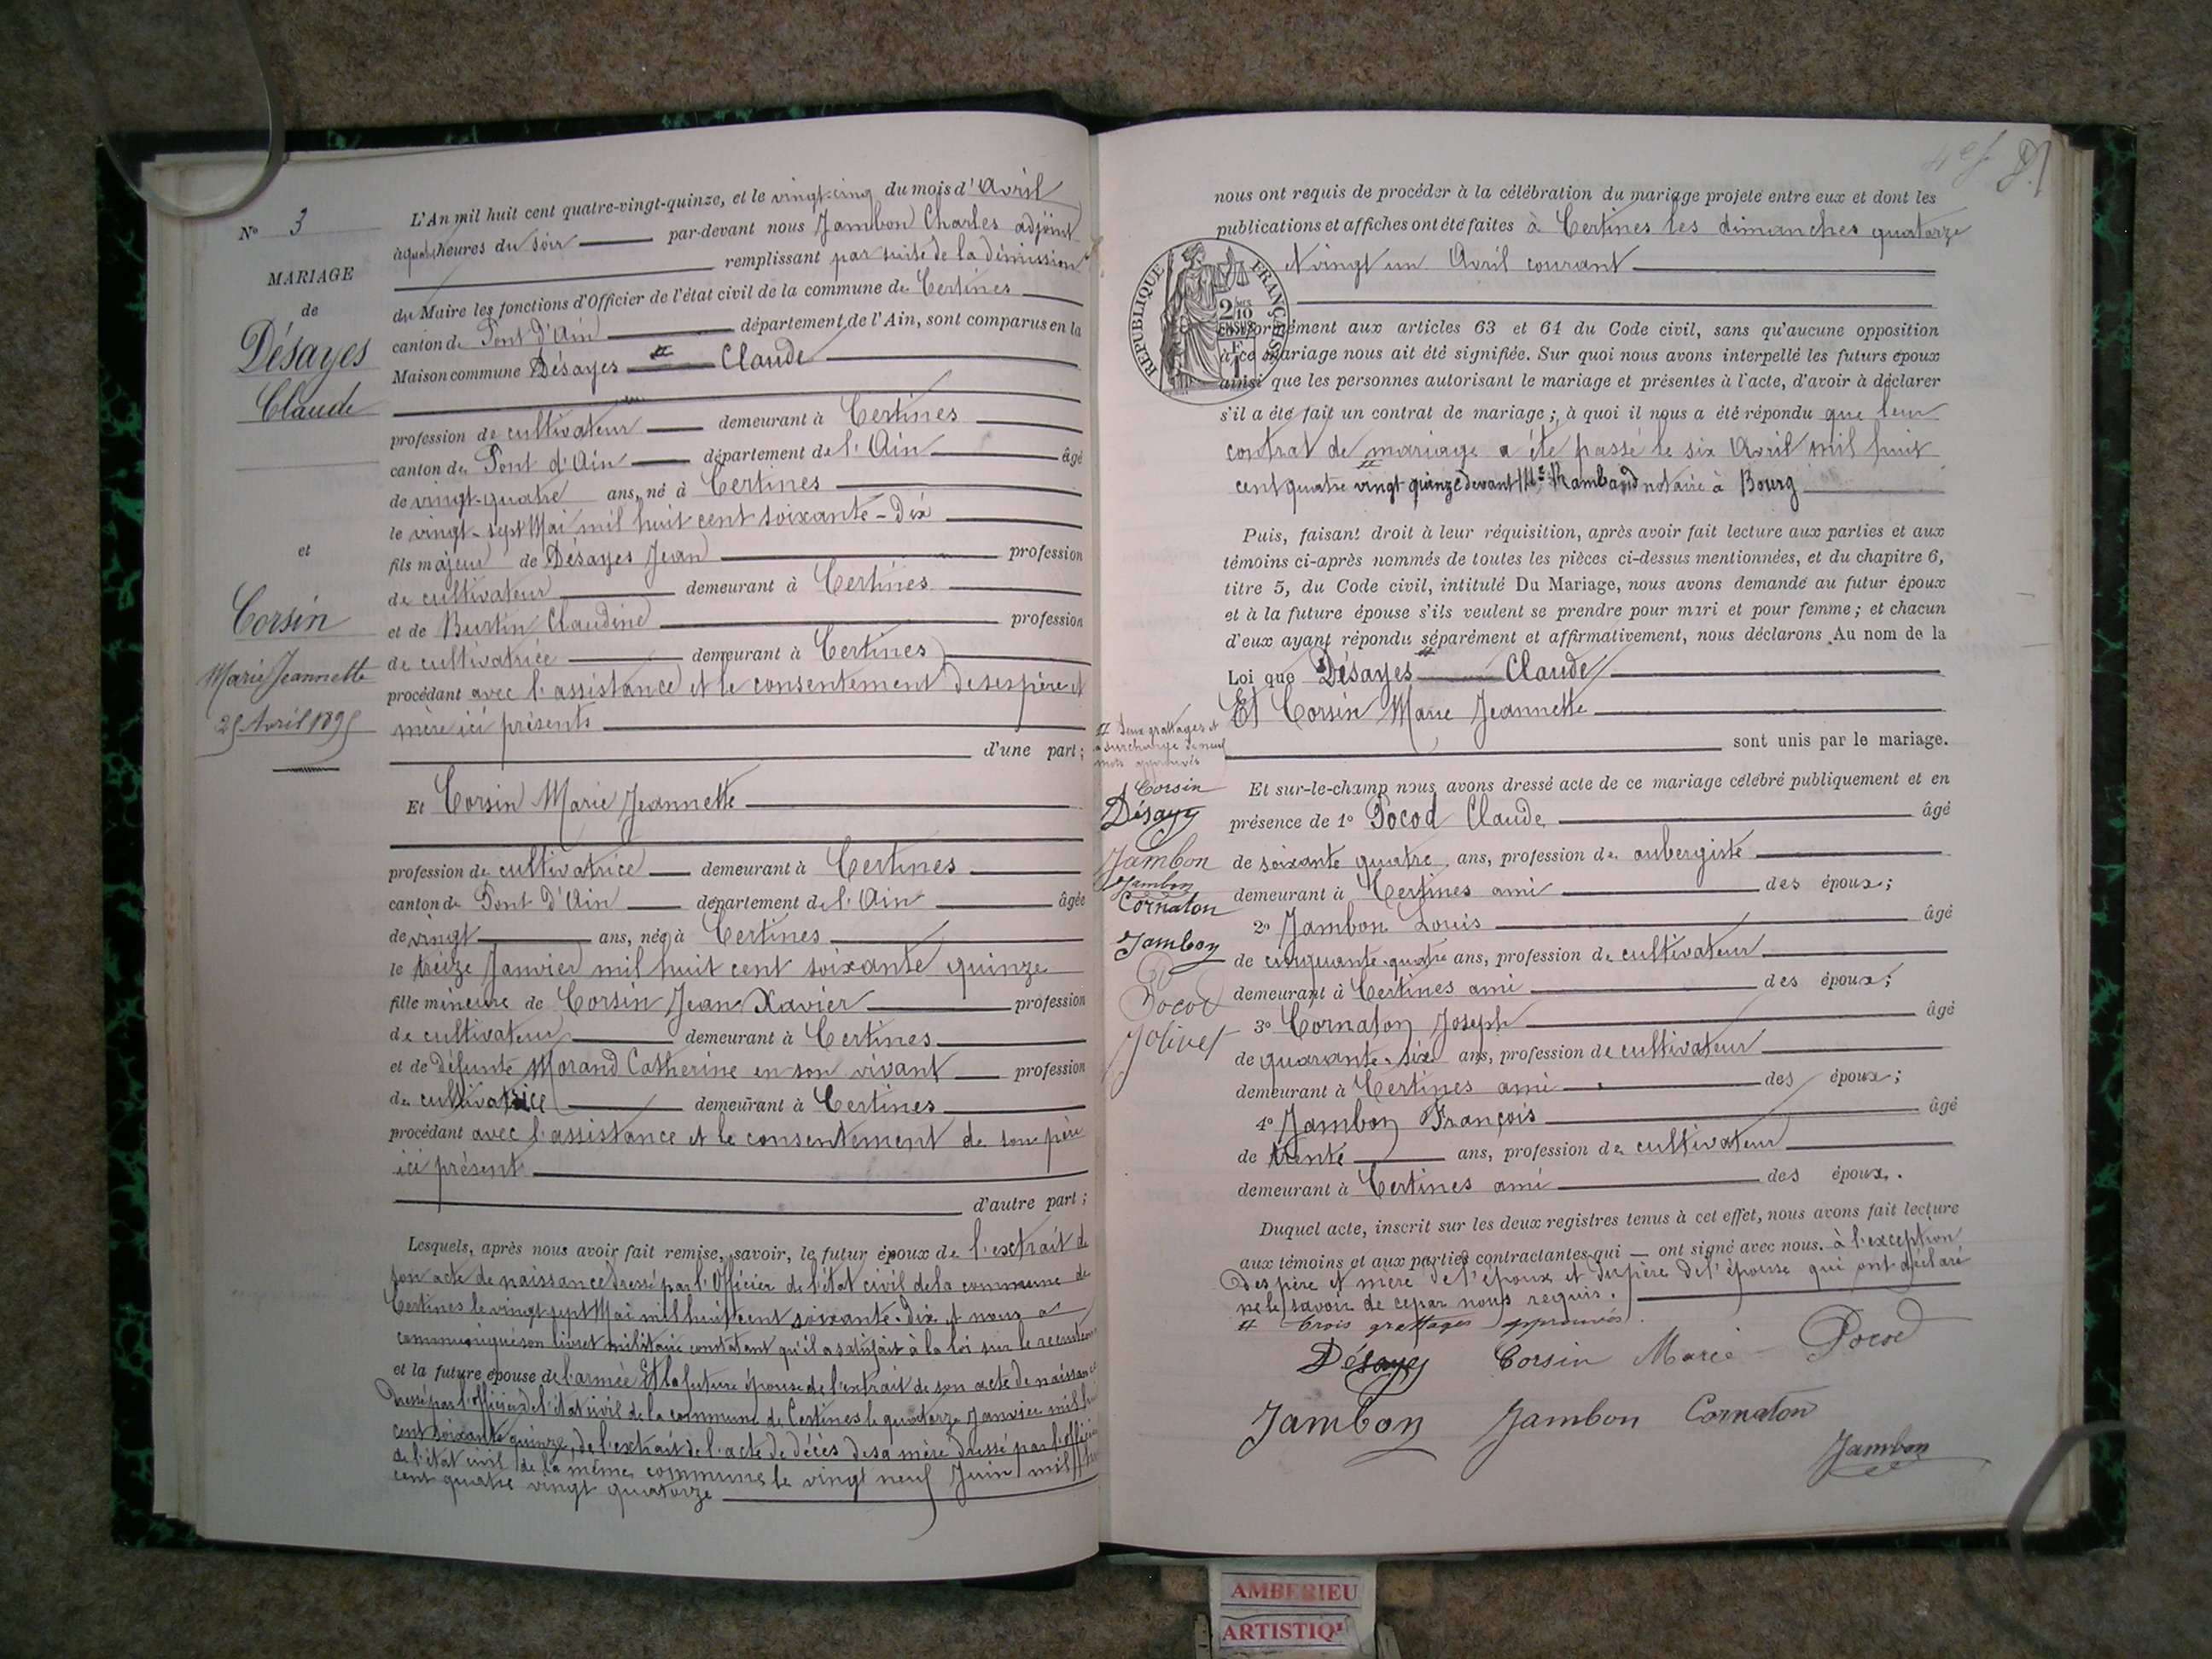 N° 3
MARIAGE
de
Désayes
Claude
et
Corsin
Marie Jeannette
25 Avril 1895
L'An mil huit cent quatre-vingt-quinze, et le vingt-cinq du mois d'Avril
heures du soir par-devant nous Jambon Charles adjoint
remplissant par suite de la démission
du Maire les fonctions d'Officier de l'état civil de la commune de Certines
canton de Pont d'Ain département de l'Ain, sont comparus en la
Maison commune Désayes Claude
profession de cultivateur demeurant à Certines
canton de Pont d'Ain département de l'Ain âgé
de vingt-quatre ans, né à Certines
le vingt-sept Mai mil huit cent soixante-Dix
fils majeur de Désayes Jean profession
de cultivateur demeurant à Certines
et de Burtin Claudine profession
de cultivatrice demeurant à Certines
procédant avec l'assistance et le consentement de ses père et
mère ici présents
d'une part;
Et Corsin Marie Jeannette
profession de cultivatrice demeurant à Certines
canton de Pont D'Ain département de l'Ain âgée
de vingt ans, née à Certines
le treize Janvier mil huit cent soixante quinze
fille mineure de Corsin Jean Xavier profession
de cultivateur demeurant à Certines
et de défunte Morand Catherine en son vivant profession
de cultivatrice demeurant à Certines
procédant avec l'assistance et le consentement de son père
ici présent
d'autre part;
Lesquels, après nous avoir fait remise, savoir, le futur époux de l'extrait de
son acte de naissance dressé par l'Officier de l'état civil de la commune de
Certines le vingt sept Mai mil huit cent soixante-dix et nous a
communiqué son livret militaire constatant qu'il a satisfait à la loi sur le
et la future épouse de l'armée Et la future épouse de l'extrait de son acte de
Dressé par l'officier de l'état civil de la commune de Certines le quatorze Janvier mil
cent soixante quinze, de l'extrait de l'acte de décès de sa mère dressé par
de l'état civil de la même commune le vingt neuf Juin mil
cent quatre vingt quatorze
nous ont requis de procéder à la célébration du mariage projeté entre eux et dont les
publications et affiches ont été faites à Certines les dimanches quatorze
et vingt un Avril courant
RÉPUBLIQUE FRANÇAISE
2/10
conformément aux articles 63 et 64 du Code civil, sans qu'aucune opposition
à ce mariage nous ait été signifiée. Sur quoi nous avons interpellé les futurs époux
ainsi que les personnes autorisant le mariage et présentes à l'acte, d'avoir à déclarer
s'il a été fait un contrat de mariage; à quoi il nous a été répondu que leur
contrat de mariage a été passé le six Avril mil huit
cent quatre vingt quinze devant notaire à Bourg
Puis, faisant droit à leur réquisition, après avoir fait lecture aux parties et aux
témoins ci-après nommés de toutes les pièces ci-dessus mentionnées, et du chapitre 6,
titre 5, du Code civil, intitulé Du Mariage, nous avons demandé au futur époux
et à la future épouse s'ils veulent se prendre pour mari et pour femme; et chacun
d'eux ayant répondu séparément et affirmativement, nous déclarons Au nom de la
Loi que Désayes Claude
Et Corsin Marie Jeannette
sont unis par le mariage.
Et sur-le-champ nous avons dressé acte de ce mariage célébré publiquement et en
présence de 1° Pocod Claude âgé
de soixante quatre ans, profession de aubergiste
demeurant à Certines ami des époux;
2° Jambon Louis âgé
de cinquante-quatre ans, profession de cultivateur
demeurant à Certines ami des époux;
3° Cornaton Joseph âgé
de quarante-six ans, profession de cultivateur
demeurant à Certines ami des époux;
4° Jambon François âgé
de trente ans, profession de cultivateur
demeurant à Certines ami des époux.
Duquel acte, inscrit sur les deux registres tenus à cet effet, nous avons fait lecture
aux témoins et aux parties contractantes qui ont signé avec nous. à l'exception
Des père et mère de l'époux et du père de l'épouse qui ont déclaré
ne le savoir de ce par nous requis.
trois grattages approuvés.
Désayes Corsin Marie Pocod
Jambon Jambon Cornaton
Jambon
Deux grattages et
surcharge de neuf
mots approuvés
Corsin
Désayes
Jambon
Jambon
Cornaton
Jambon
Pocod
Jolivet
AMBERIEU
ARTISTIQ